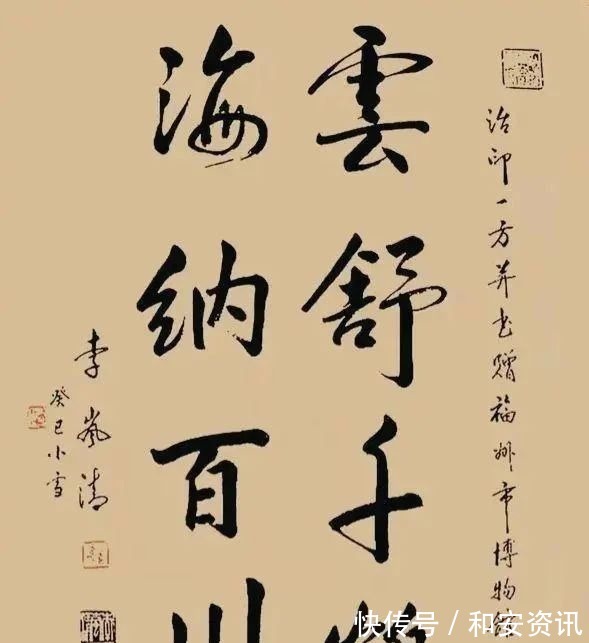 治印一方并书赠福州市博物馆
雲舒千
海纳百川
李岚清
癸巳小雪
快传号 / 和安资讯